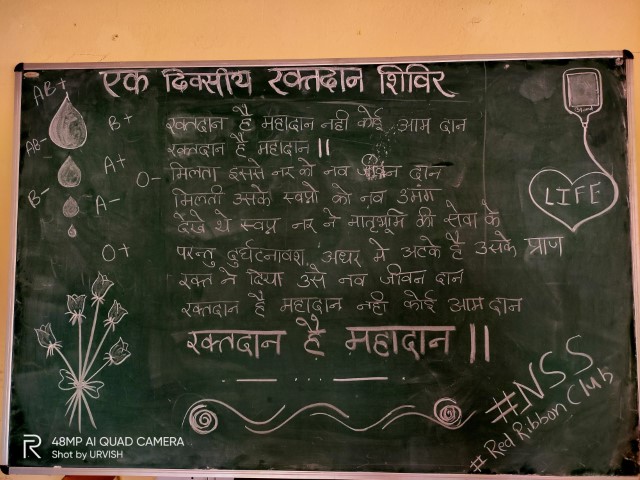 एक दिवसीय रक्तदान शिविर
AB+
B+
AB-
A+
O-
B-
A-
O+
रक्तदान है महादान नही कोई आम दान
रक्तदान है महादान ||
मिलता इससे नर को नव जीवन दान
मिलती उसके स्वप्नो को नव उमंग
देखे थे स्वप्न नर ने मातृभूमि की सेवा के
परन्तु दुर्घटनावश, अधर मे अटके है उसके प्राण
रक्त ने दिया उसे नव जीवन दान
रक्तदान है महादान नही कोई आम दान
रक्तदान है महादान ||
LIFE
#NSS
# Red Ribbon Club
48MP AI QUAD CAMERA
Shot by URVISH